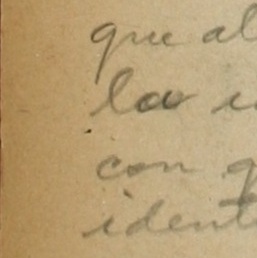 que al
la
con
ident